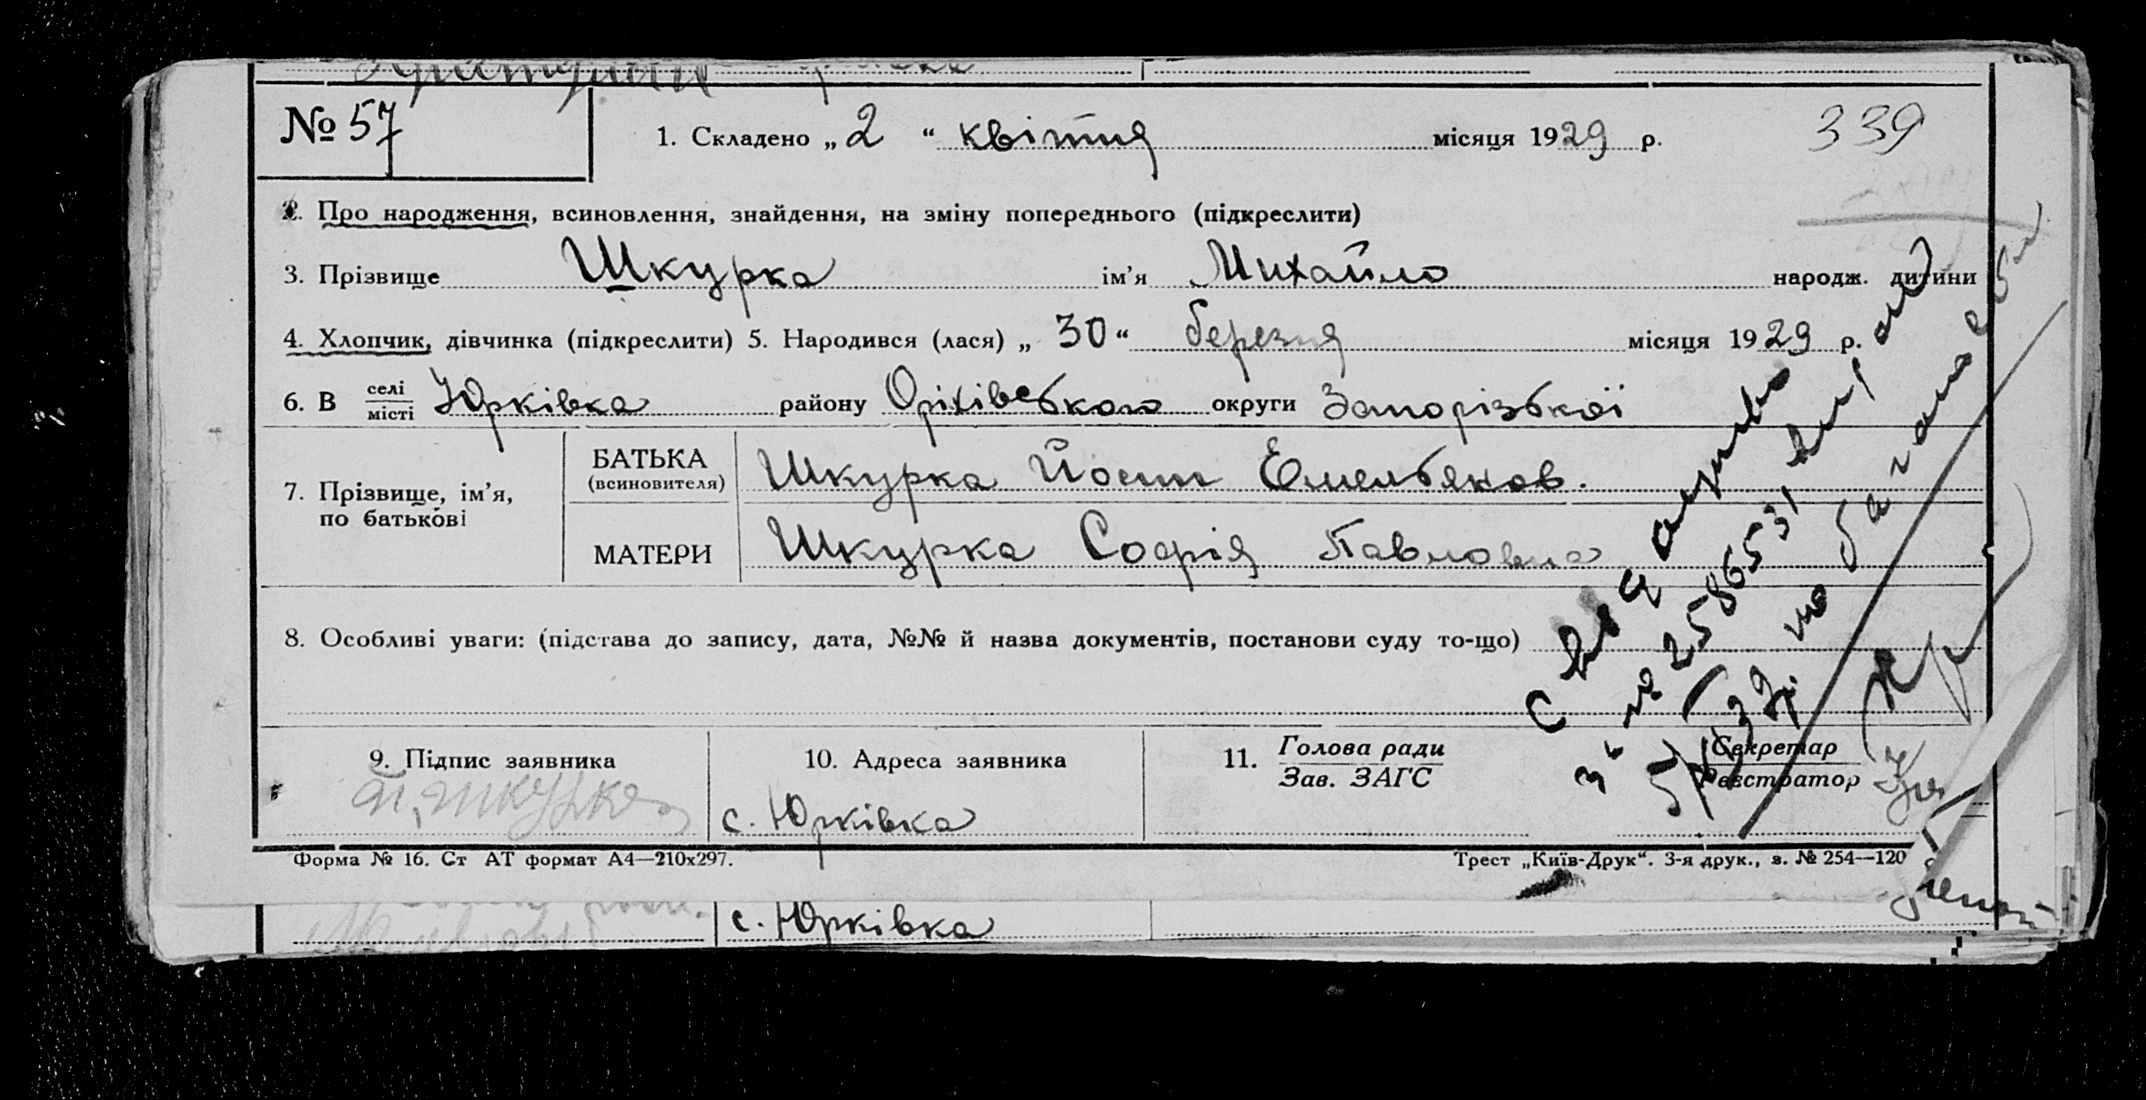 № 57
1. Складено „ 2 “ квітня місяця 1929 р.
339
2. Про народження, всиновлення, знайдення, на зміну попереднього (підкреслити)
3. Прізвище Шкурка ім’я Михайло народж. дитини
4. Хлопчик, дівчинка (підкреслити) 5. Народився (лася) „ 30 “ березня місяця 1929 р.
6. В селі/місті Юрківка району Оріхівського округи Запорізької
7. Прізвище, ім’я, по батькові
БАТЬКА (всиновителя) Шкурка Йосип Емельянов.
МАТЕРИ Шкурка Софія Павловна
8. Особливі уваги: (підстава до запису, дата, №№ й назва документів, постанови суду то-що)
9. Підпис заявника
Шкурка
10. Адреса заявника
с. Юрківка
11. Голова ради
Зав. ЗАГС
Секретар
Реєстратор
Форма № 16. Ст АТ формат А4—210х297.
Трест „Київ-Друк“. 3-я друк., з. № 254—120
с. Юрківка
№ 2586531